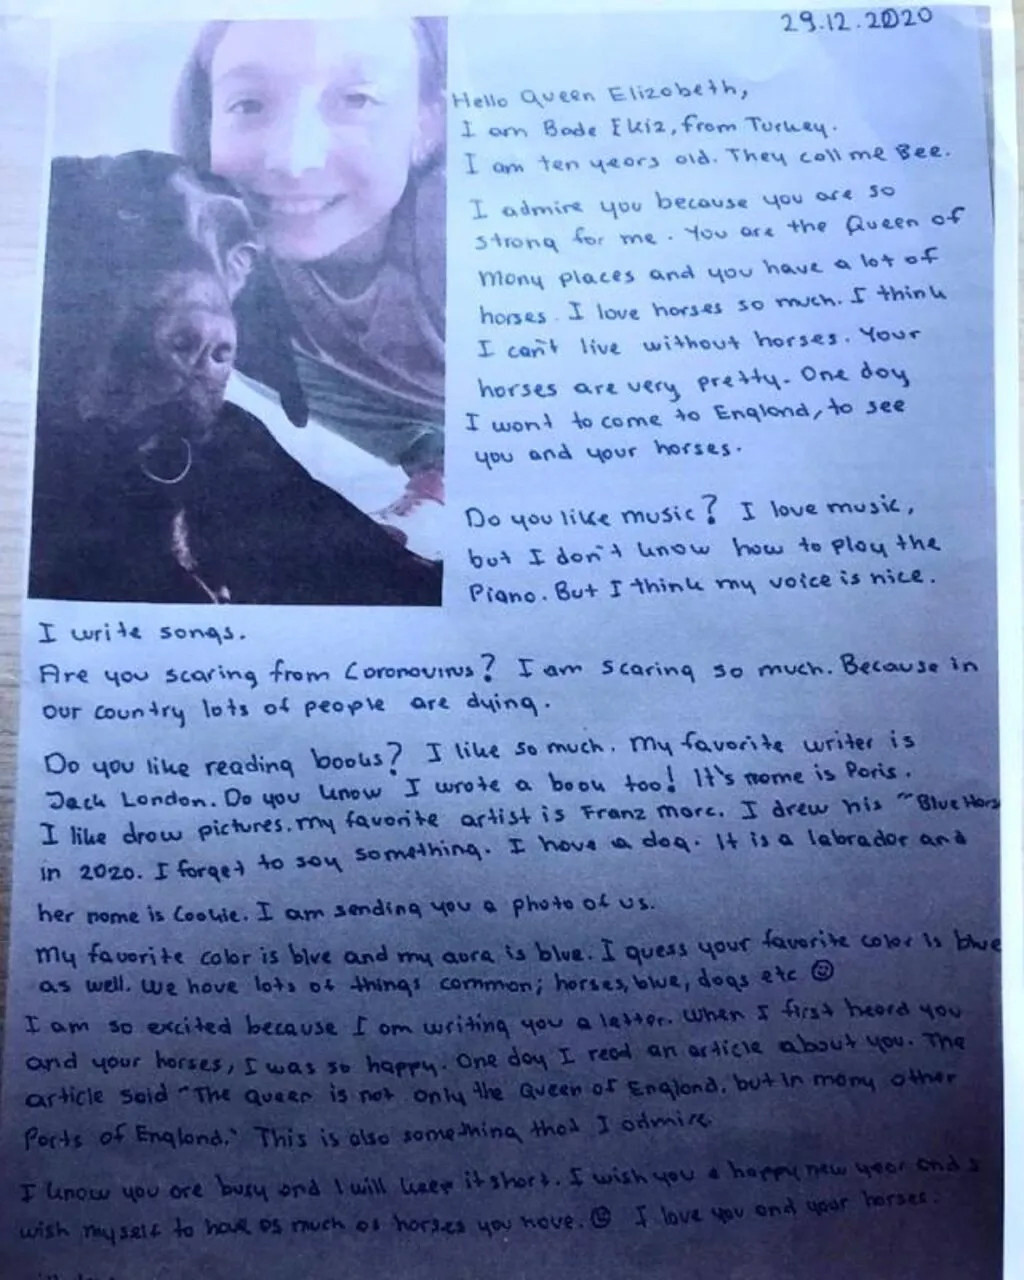 29.12.2020
Hello Queen Elizabeth,
I am Bade Ekiz, from Turkey.
I am ten years old. They call me Bee.
I admire you because you are so
strong for me. You are the Queen of
many places and you have a lot of
horses. I love horses so much. I think
I can't live without horses. Your
horses are very pretty. One day
I want to come to England, to see
you and your horses.
Do you like music? I love music,
but I don't know how to play the
Piano. But I think my voice is nice.
I write songs.
Are you scaring from Coronovirus? I am scaring so much. Because in
our country lots of people are dying.
Do you like reading books? I like so much. My favorite writer is
Jack London. Do you know I wrote a book too! It's name is Paris.
I like draw pictures. my favorite artist is Franz Marc. I drew his "Blue Hors
in 2020. I forget to say something. I have a dog. It is a labrador and
her name is Cookie. I am sending you a photo of us.
My favorite color is blue and my aura is blue. I guess your favorite color is blue
as well. We have lots of things common; horses, blue, dogs etc ☺
I am so excited because I am writing you a letter. When I first heard you
and your horses, I was so happy. One day I read an article about you. The
article said "The Queen is not only the Queen of England, but in many other
Parts of England." This is also something that I admire.
I know you are busy and I will keep it short. I wish you a happy new year and I
wish myself to have as much as horses you have. ☺ I love you and your horses.